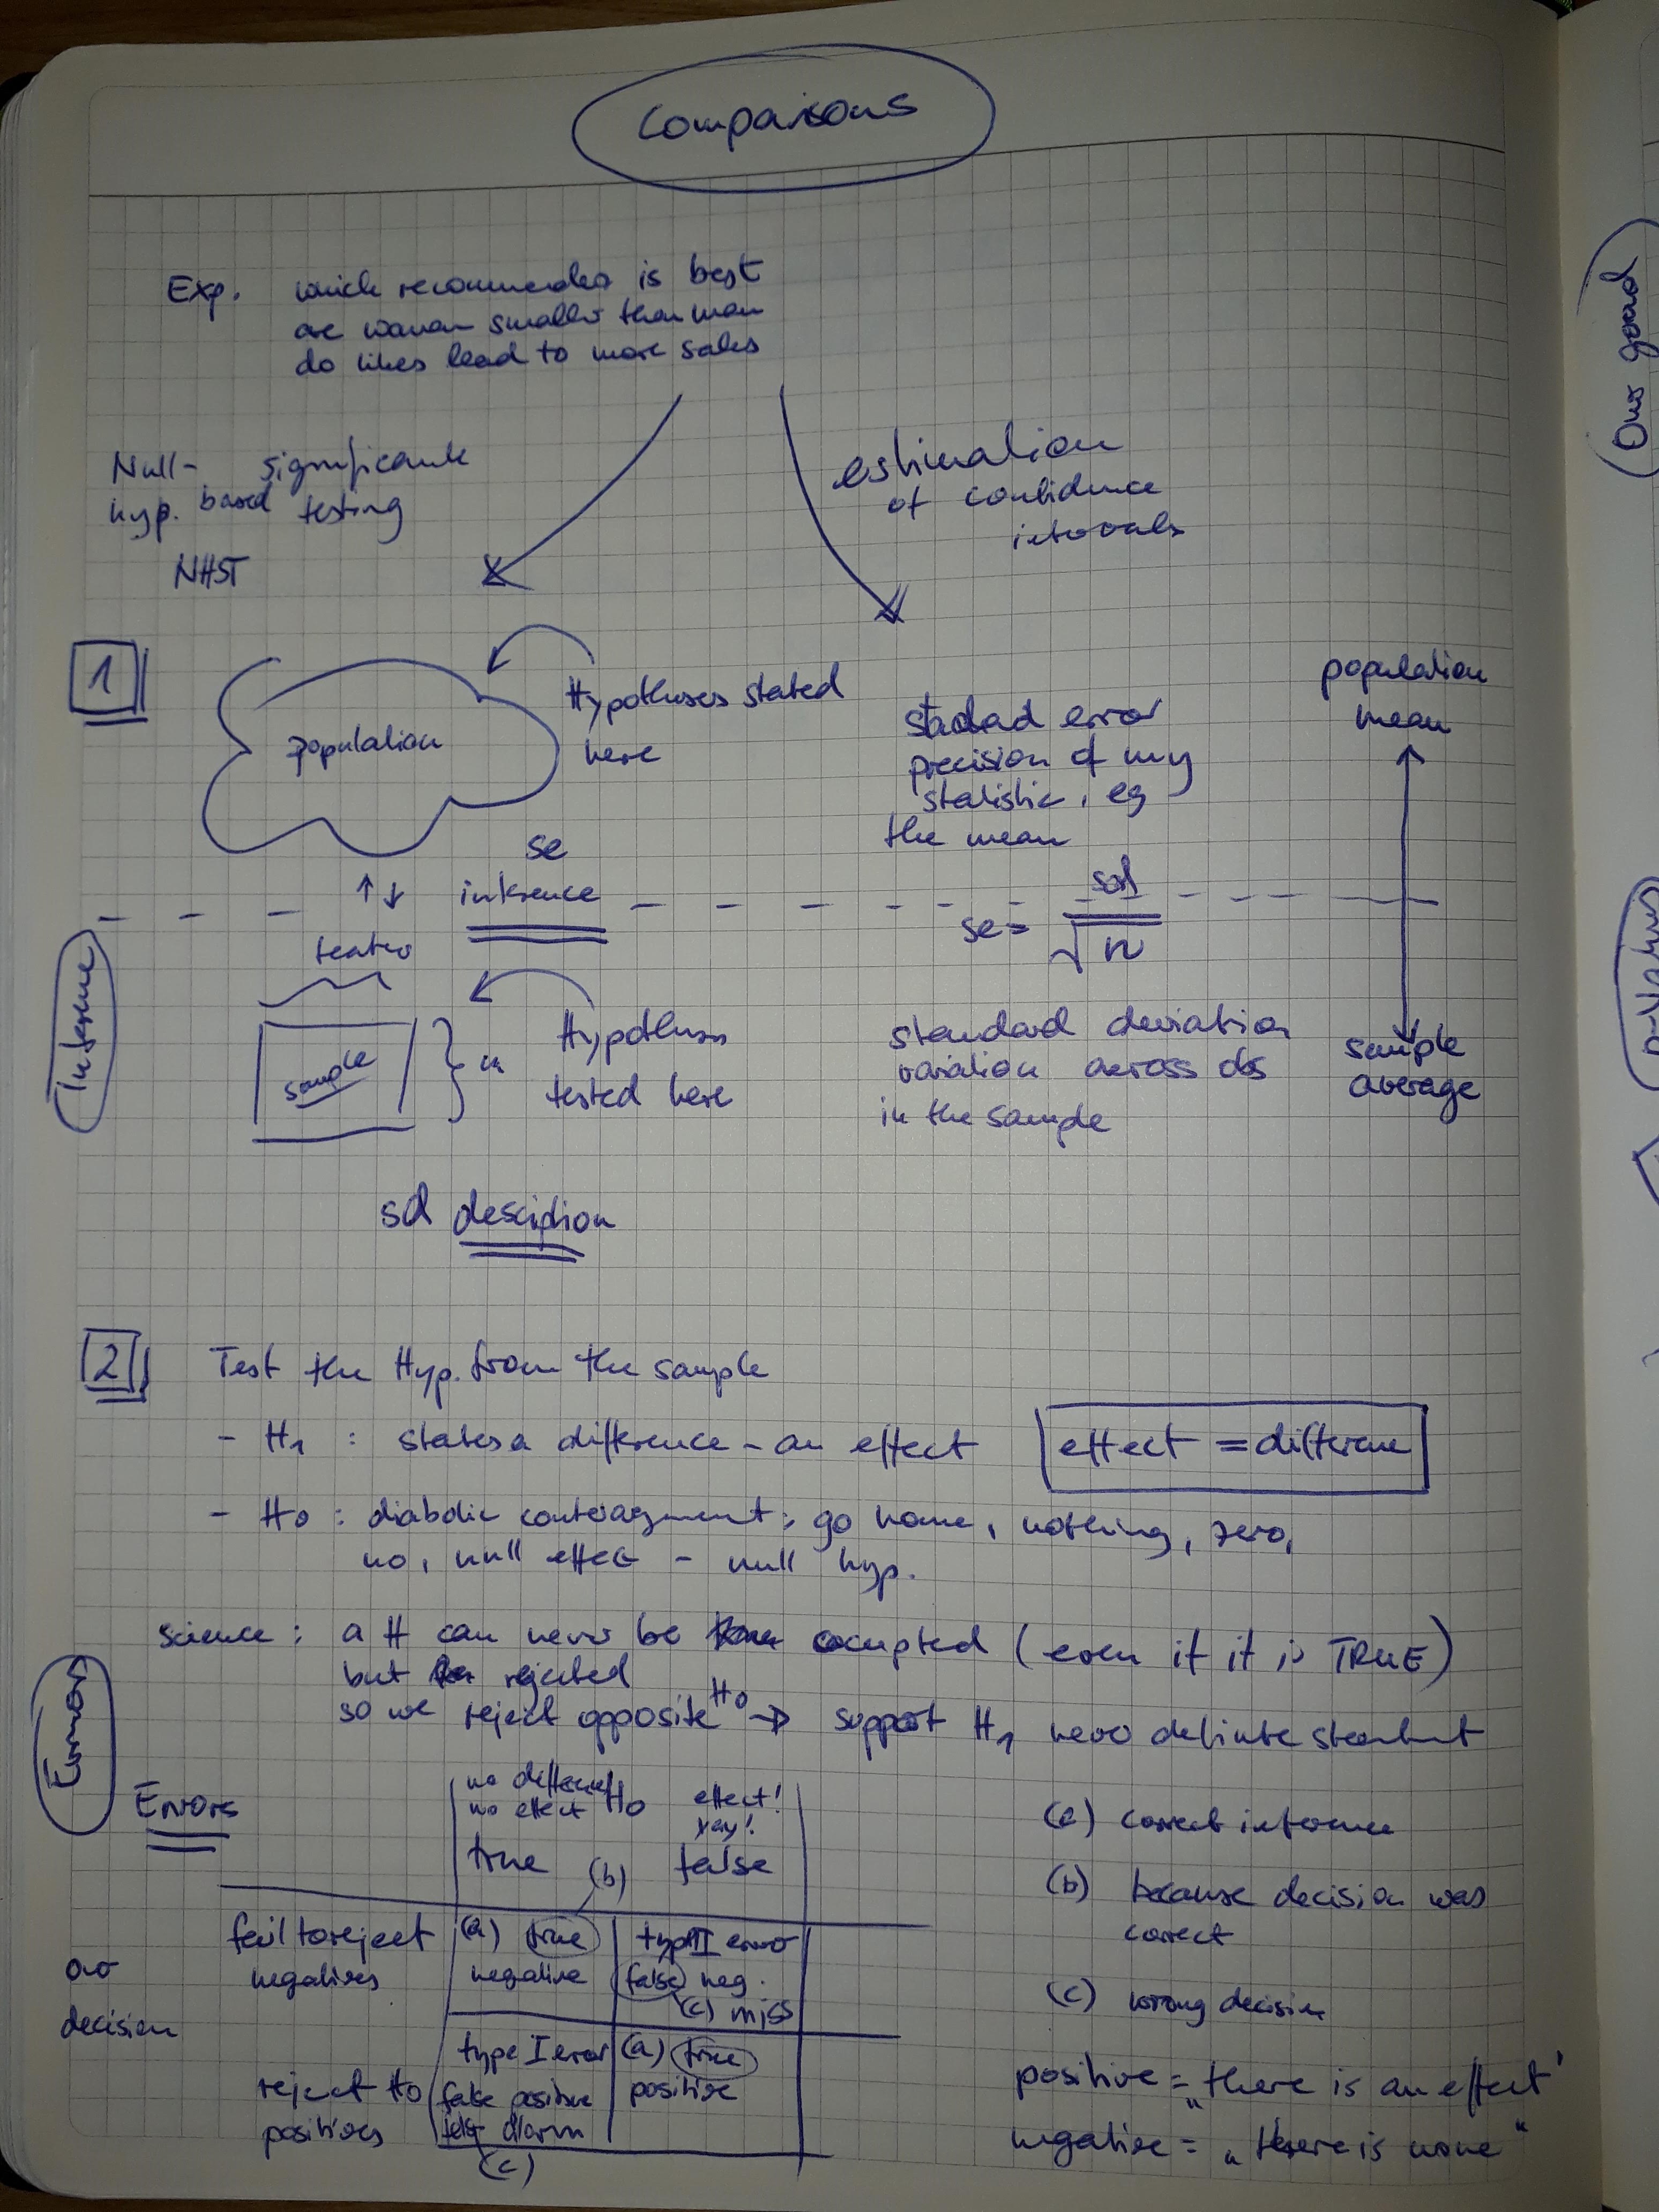 Comparisons
Exp. which recommender is best
are women smaller than men
do likes lead to more sales
Null- significance
hyp. based testing
NHST
estimation
of confidence
intervals
1
population
Hypotheses stated
here
standard error
precision of my
statistic, eg
the mean
population
mean
se
↑↓ inference
se = sd / √n
Inference
sample
} n
Hypothesis
tested here
standard deviation
variation across obs
in the sample
sample
average
sd description
2 Test the Hyp. from the sample
- H1 : states a difference - an effect
effect = difference
- H0 : diabolic conteragument, go home, nothing, zero,
no, null effect - null hyp.
science : a H can never be accepted (even if it is TRUE)
but rejected
so we reject opposite H0 → support H1 never definite statement
Errors
Errors
no difference H0 effect!
no effect yay!
true (b) false
fail to reject (a) true type II error
negatives negative false neg.
(c) miss
our
decision
type I error (a) true
reject H0 false positive positive
positives false alarm
(c)
(a) correct inference
(b) because decision was
correct
(c) wrong decision
positive = „there is an effect"
negative = „there is none"
Our
p-Values